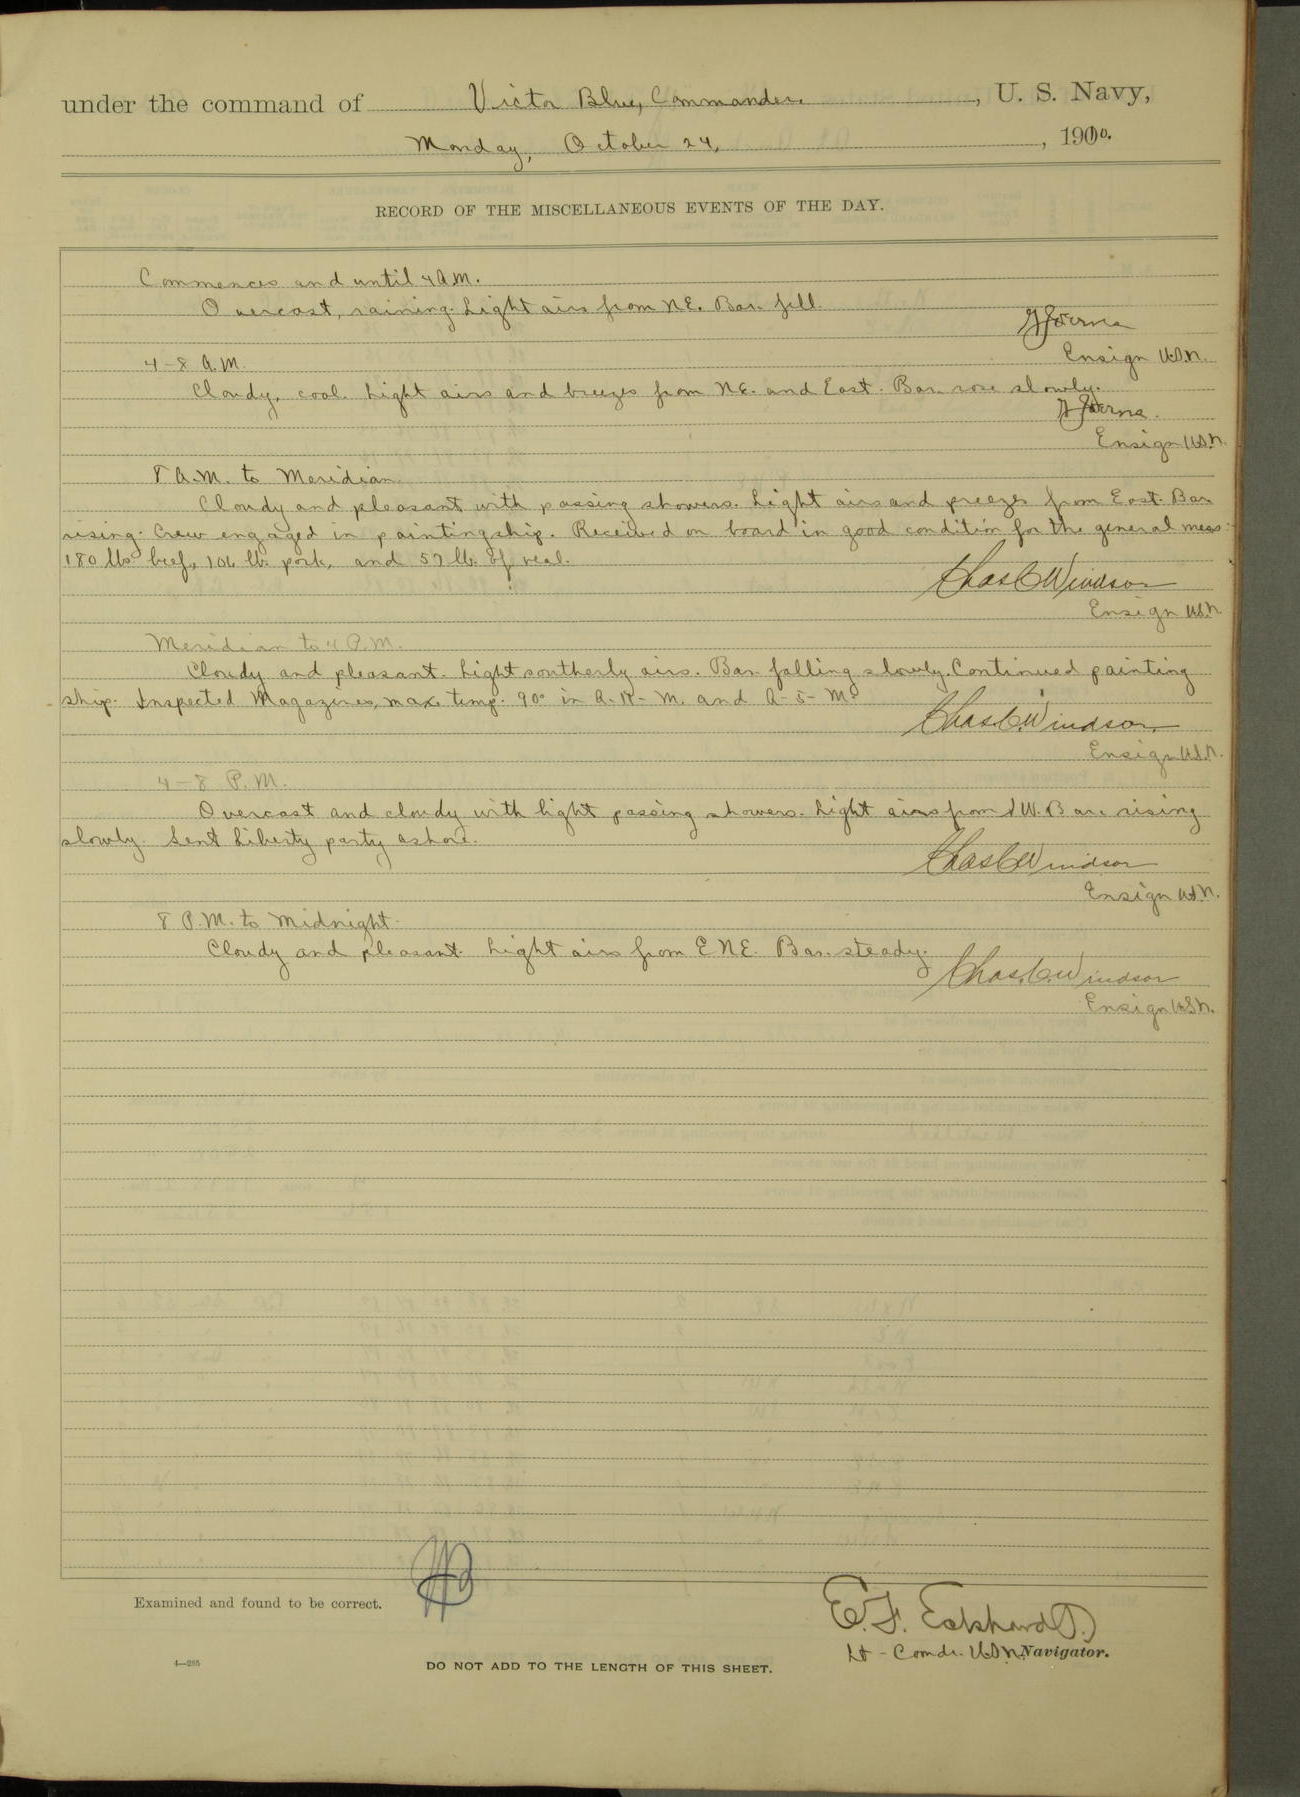 under the command of Victor Blue, Commander, U. S. Navy,
Monday, October 24, 190
RECORD OF THE MISCELLANEOUS EVENTS OF THE DAY.
Commences and until 4 A.M.
Overcast, raining. Light airs from NE. Bar. fell.
Ensign U.S.N.
4-8 A.M.
Cloudy, cool. Light airs and breezes from NE. and East. Bar. rose slowly.
Ensign U.S.N.
8 A.M. to Meridian.
Cloudy and pleasant with passing showers. Light airs and breezes from East. Bar
rising. Crew engaged in painting ship. Received on board in good condition for the general mess:
180 lbs beef, 106 lb. pork, and 57 lb. of veal.
Chas C Windsor
Ensign U.S.N.
Meridian to 4 P.M.
Cloudy and pleasant. Light southerly airs. Bar. falling slowly. Continued painting
ship. Inspected Magazines, max. temp. 90° in M. and A-5-M.
Chas C. Windsor
Ensign U.S.N.
4-8 P.M.
Overcast and cloudy with light passing showers. Light airs from Bar. rising
slowly. Sent Liberty party ashore.
Chas C W indsor
Ensign U.S.N.
8 P.M. to Midnight.
Cloudy and pleasant. Light airs from ENE. Bar. steady.
Chas. C. Windsor
Ensign U.S.N.
Examined and found to be correct.
E. F. Eckhardt.
Lt - Comdr. U.S.N. Navigator.
4-285
DO NOT ADD TO THE LENGTH OF THIS SHEET.